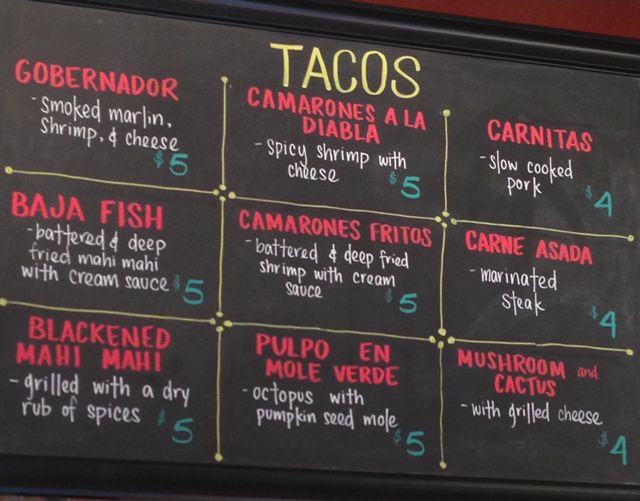 TACOS
GOBERNADOR
- Smoked marlin,
shrimp, & cheese
$5
CAMARONES A LA
DIABLA
- spicy shrimp with
cheese
$5
CARNITAS
- slow cooked
pork
$4
BAJA FISH
- battered & deep
fried mahi mahi
with cream sauce $5
CAMARONES FRITOS
- battered & deep fried
shrimp with cream
sauce
$5
CARNE ASADA
- marinated
steak
$4
BLACKENED
MAHI MAHI
- grilled with a dry
rub of spices $5
PULPO EN
MOLE VERDE
- octopus with
pumpkin seed mole
$5
MUSHROOM and
CACTUS
- with grilled cheese
$4